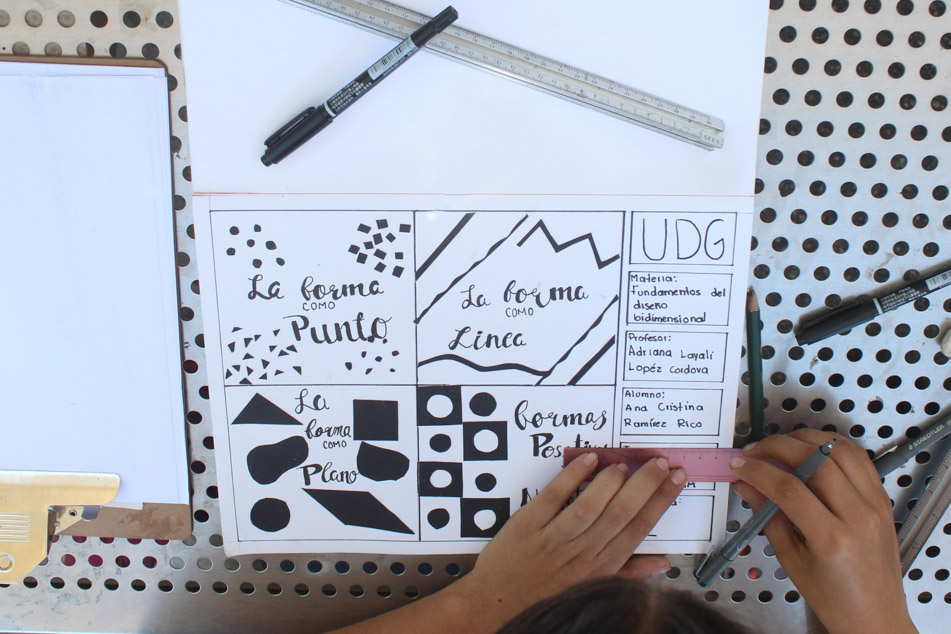 La forma
como
Punto
La forma
como
Linea
La
forma
como
Plano
formas
UDG
Materia:
Fundamentos del
diseño
bidimensional
Profesor:
Adriana Layali
Lopéz Cordova
Alumno:
Ana Cristina
Ramírez Rico
STAEDTLER